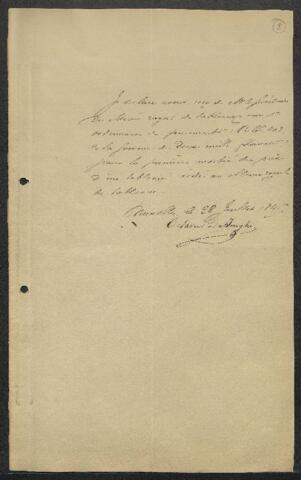 8
Je déclare avoir reçu de Mr le Secrétaire
du Musée royal de tableaux
ordonnance de paiement
de la somme de Deux mille francs
pour la première moitié du prix
d'un tableau cédé au Musée royal
de tableaux.
Bruxelles, le 28 Juillet